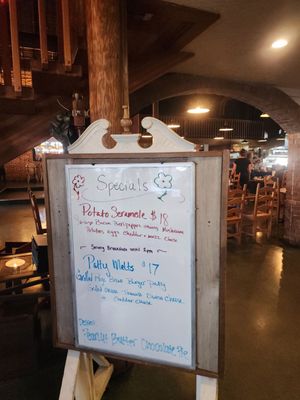 Specials
Potato Scramble $18
Bacon Bell peppers onions Mushrooms
Potatoes, eggs Cheddar cheese
Serving Breakfast until 2pm
Patty Melts $17
Burger Patty
Grilled onion Tomato Swiss Cheese
+ Cheddar cheese
Dessert
Peanut Butter Chocolate Pie